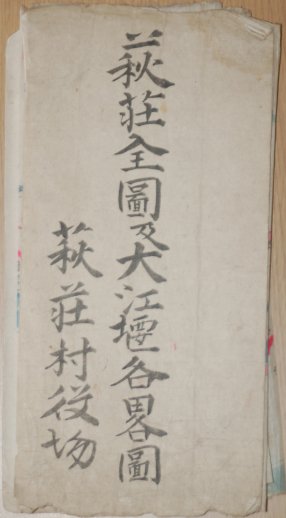 萩荘全圖及大江堰各畧圖
萩荘村役場